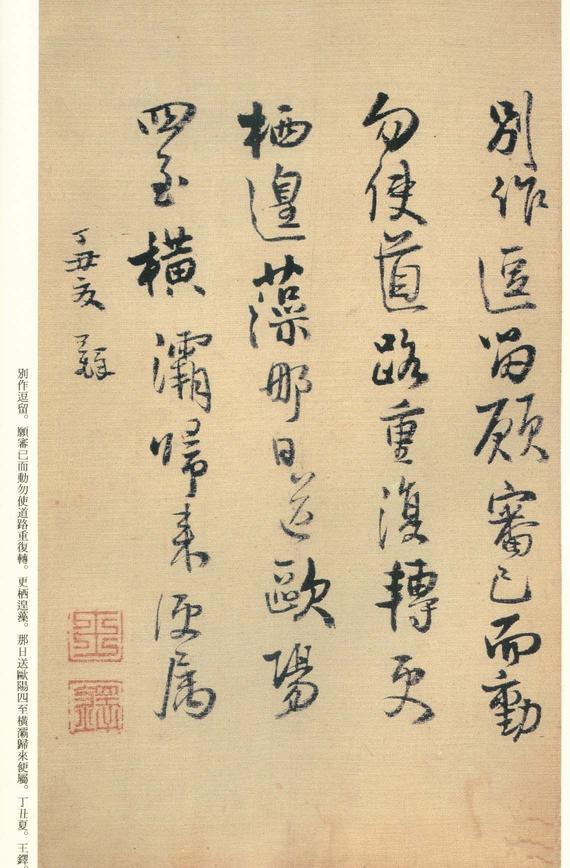 別作逗留願審己而動
勿使道路重復轉更
栖遑藻那日送歐陽
四至橫灞歸来便属
丁丑夏
王
鐸
別作逗留。願審已而動勿使道路重復轉。更栖遑藻。那日送歐陽四至橫灞歸來便屬。丁丑夏。王鐸